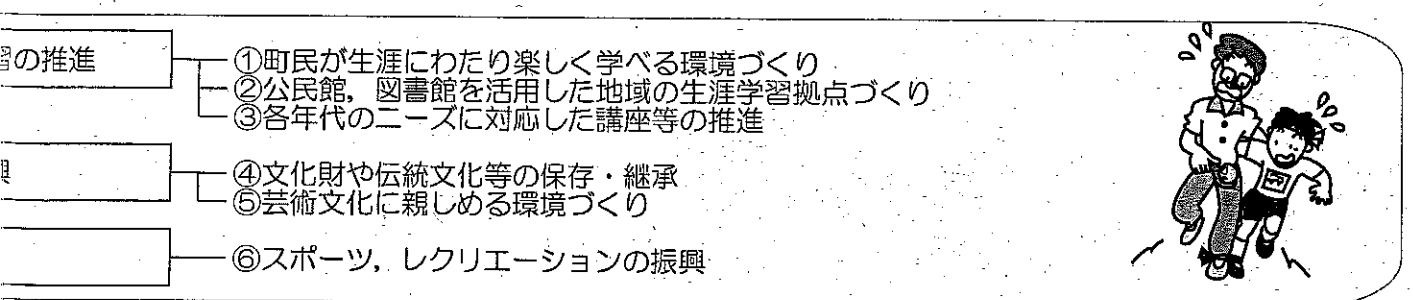 習の推進
①町民が生涯にわたり楽しく学べる環境づくり
②公民館，図書館を活用した地域の生涯学習拠点づくり
③各年代のニーズに対応した講座等の推進
興
④文化財や伝統文化等の保存・継承
⑤芸術文化に親しめる環境づくり
⑥スポーツ，レクリエーションの振興